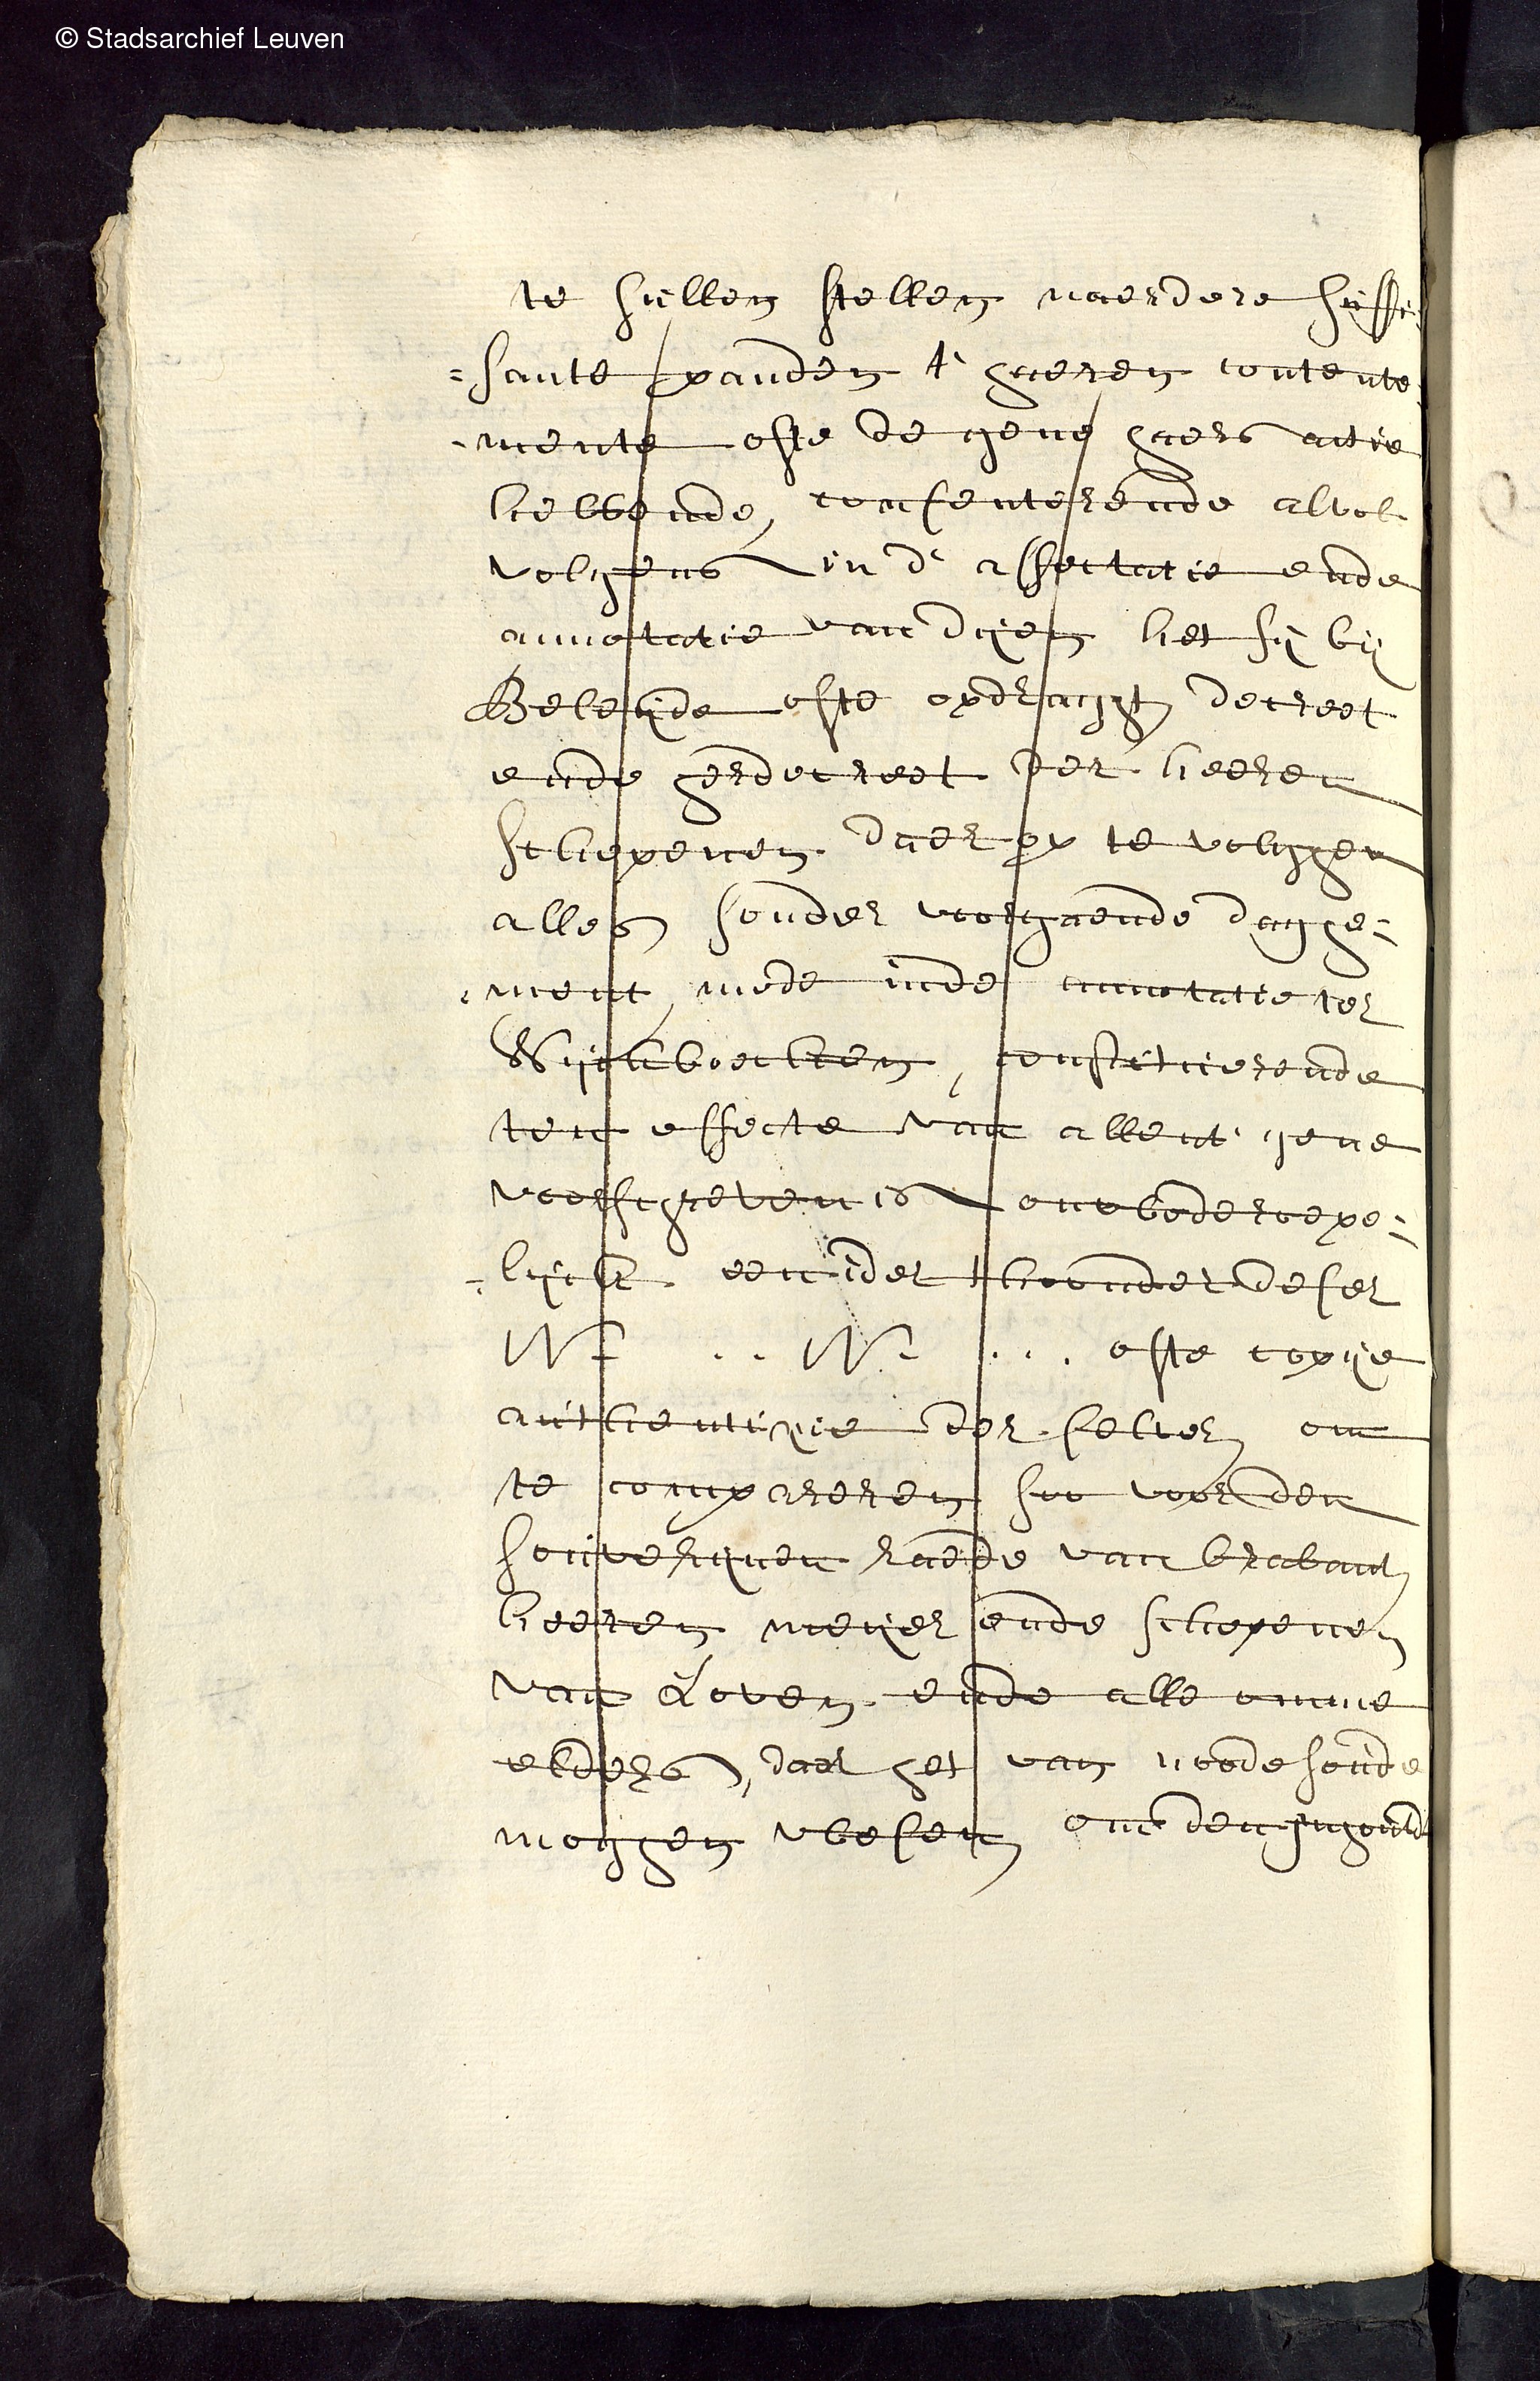 © Stadsarchief Leuven
te sullen stellen naerdere suffi¬
=sante panden t' haeren contente¬
-mente ofte de gene haers actie
hebbende, consenterende alvol
volgens in d' affectatie ende
annotatie van dijen het sij bij
Beleijde ofte opdracht decreet
ende herdecreet der heeren
schepenen daer op te volgen
alles sonder voorgaende daghe=
=ment, mede inde annotatie ter
Wijckboecken, constituerende
ten effecte van allent' gene
voorschreven is onwederroepe=
=lijck een ider thoonder deser
N: .. N: ... ofte copije
authentique der selver om
te compareren soo voor den
souverijnen raede van brabant
heeren meijer ende schepenen
van Loven ende alle omme
elders, daer het van noode soude
moghen wesen om den